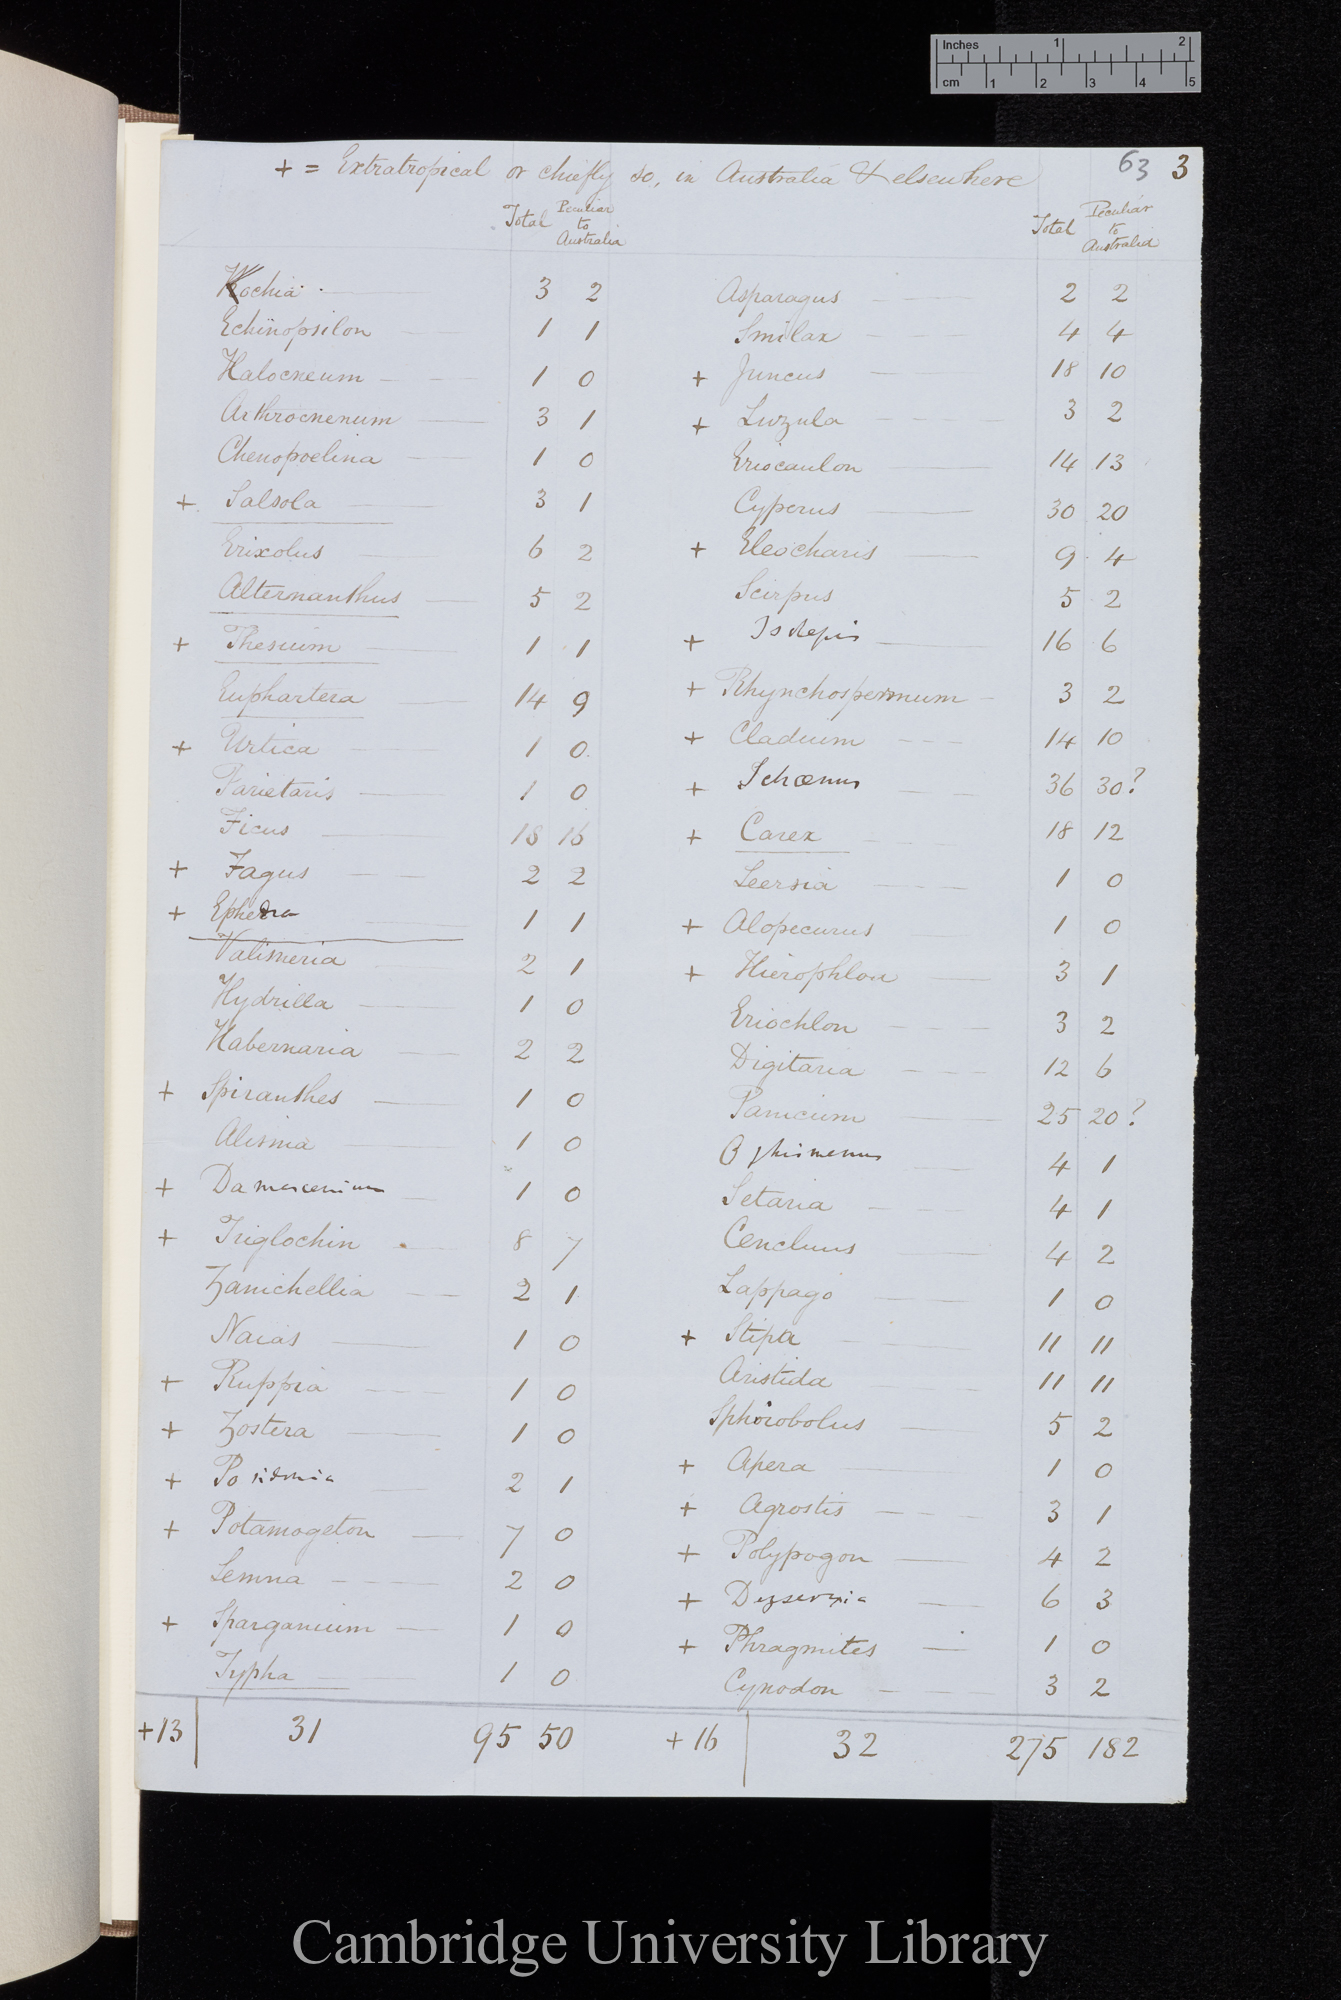 Inches 1 2
cm 1 2 3 4 5
63 3
+ = Extratropical or chiefly so, in Australia & elsewhere
Total Peculiar to Australia
Kochia 3 2
Echinopsilon 1 1
Halocneum 1 0
Arthrocnenum 3 1
Chenopoelina 1 0
+ Salsola 3 1
Erixolus 6 2
Alternanthus 5 2
+ Thesium 1 1
Euphartera 14 9
+ Urtica 1 0
Parietaris 1 0
Ficus 18 16
+ Fagus 2 2
+ Ephedra 1 1
Valisneria 2 1
Hydrilla 1 0
Habernaria 2 2
+ Spiranthes 1 0
Alisma 1 0
+ Damascenium 1 0
+ Triglochin 8 7
Zanichellia 2 1
Naias 1 0
+ Ruppia 1 0
+ Zostera 1 0
+ Posidonia 2 1
+ Potamogeton 7 0
Lemna 2 0
+ Sparganium 1 0
Typha 1 0
+13 31 95 50
Total Peculiar to Australia
Asparagus 2 2
Smilax 4 4
+ Juncus 18 10
+ Luzula 3 2
Eriocaulon 14 13
Cyperus 30 20
+ Eleocharis 9 4
Scirpus 5 2
+ Isolepis 16 6
+ Rhynchospermum 3 2
+ Cladium 14 10
+ Schœnus 36 30?
+ Carex 18 12
Leersia 1 0
+ Alopecurus 1 0
+ Hierophloa 3 1
Eriochlon 3 2
Digitaria 12 6
Panicum 25 20?
Oplismenus 4 1
Setaria 4 1
Cenchrus 4 2
Lappago 1 0
+ Stipa 11 11
Aristida 11 11
Sphorobolus 5 2
+ Apera 1 0
+ Agrostis 3 1
+ Polypogon 4 2
+ Deyeuxia 6 3
+ Phragmites 1 0
Cynodon 3 2
+16 32 275 182
Cambridge University Library